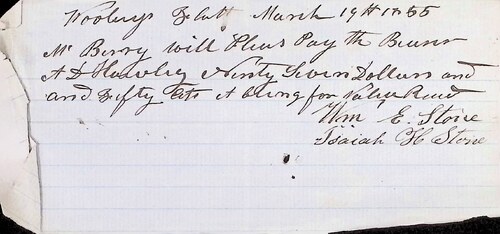 Wooleys Flatt March 19th 1855
Mr Berry will Pleas Pay th Bearer
A D Hawley Ninty Seven Dollars and
and Fifty cts it being for Value Recd
Wm E. Stone
Isaiah H Stone